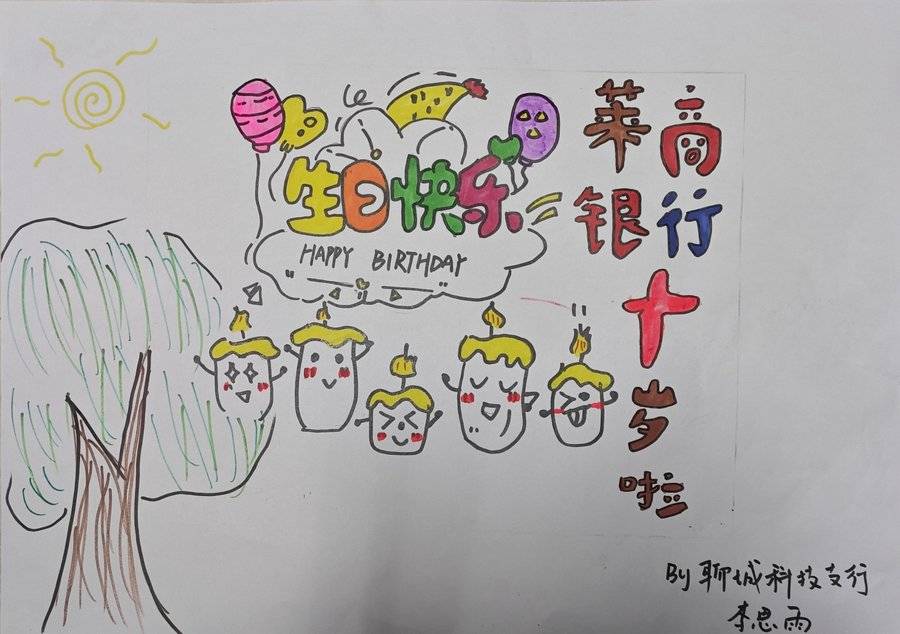 生日快乐
HAPPY BIRTHDAY
莱商
银行
十
岁
啦
By 聊城科技支行
李思雨